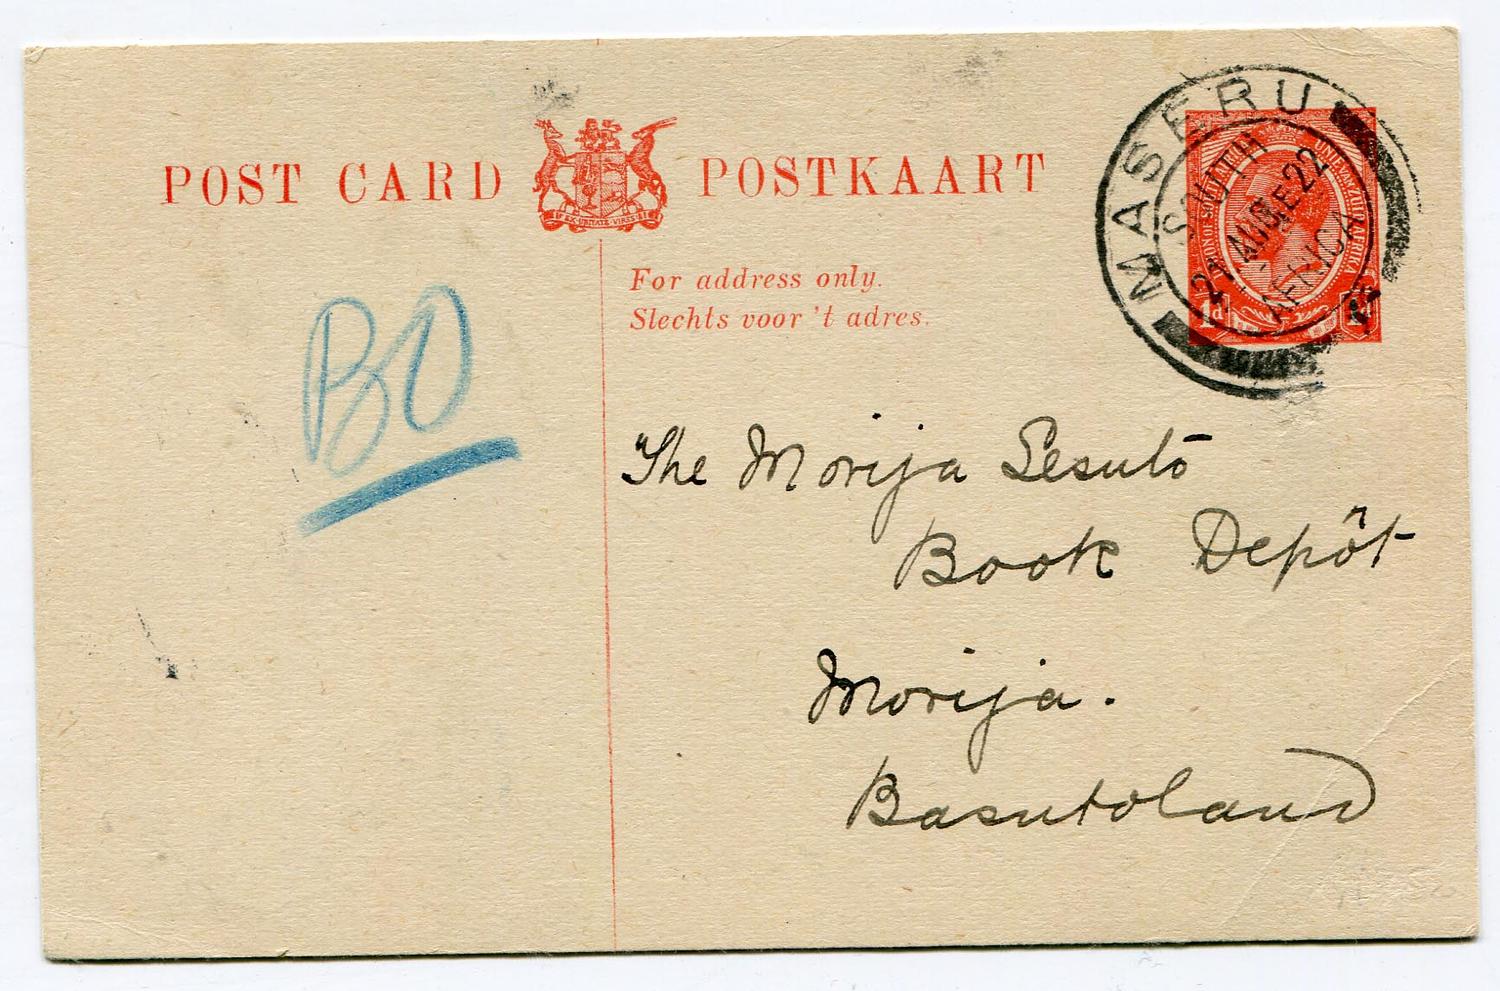 POST CARD POSTKAART
EX UNITATE VIRES
For address only.
Slechts voor 't adres.
MASERU
SOUTH
AFRICA
UNIE VAN ZUID AFRIKA
1d
BO
The Morija Sesuto
Book Depôt
Morija.
Basutoland